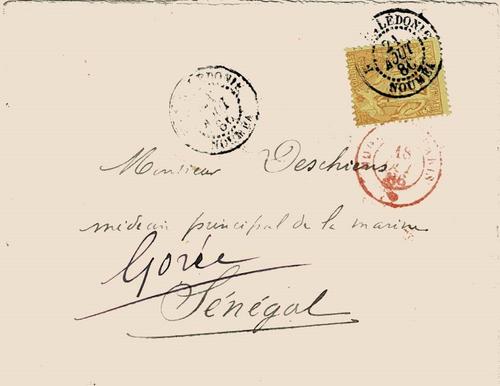 LÉDONIE
21
AOUT
86
NOUMEA
ÉDONIE
86
NOUMEA
18
PARIS
86
Monsieur Deschiens
médecin principal de la marine
Gorée
Sénégal